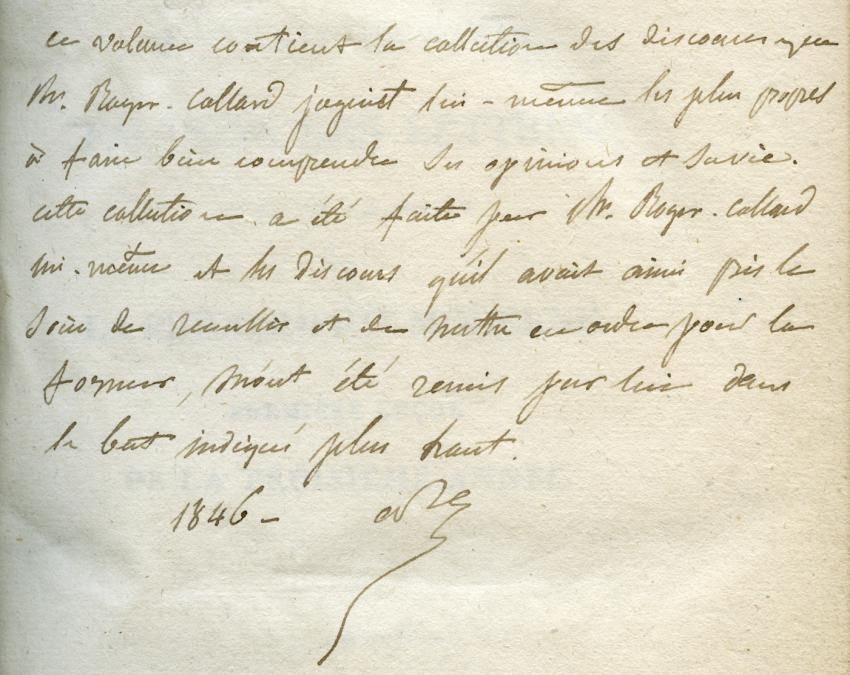 ce volume contient la collection des discours que
Mr. Royer-Collard jugeait lui-même les plus propres
à faire bien comprendre ses opinions et sa vie.
cette collection a été faite par Mr. Royer-Collard
lui-même et les discours qu'il avait ainsi pris le
soin de recueillir et de mettre en ordre pour la
former, m'ont été remis par lui dans
le but indiqué plus haut.
1846 -